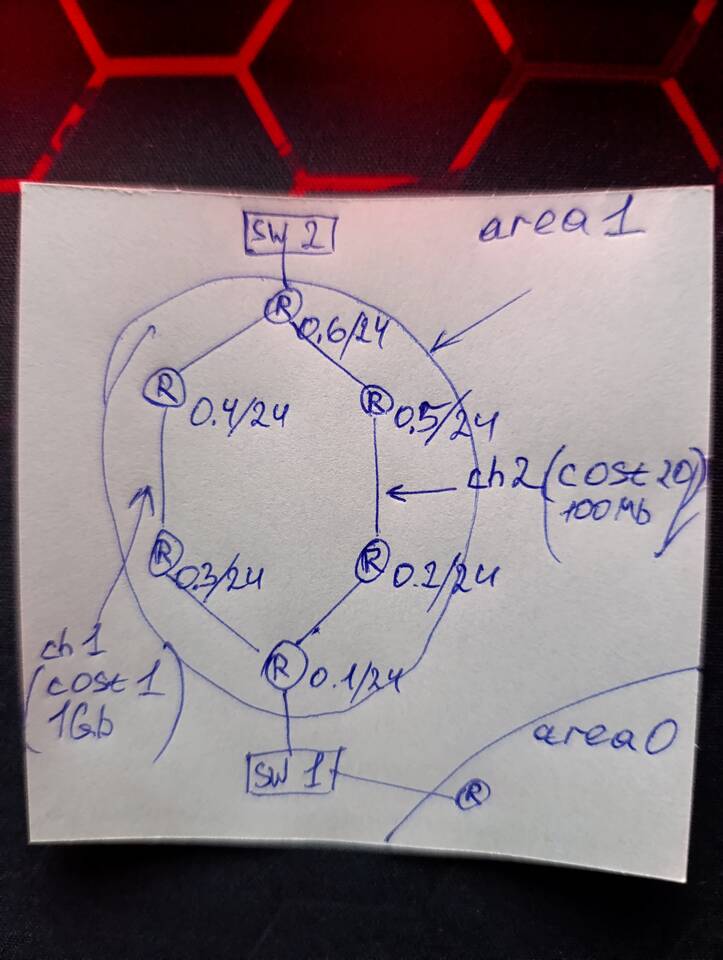 SW 2
area 1
R
0.6/24
R
0.4/24
R
0.5/24
ch 2 (cost 20)
100 Mb
R
0.3/24
R
0.2/24
ch 1
(cost 1
1Gb)
R
0.1/24
SW 1
area 0
R